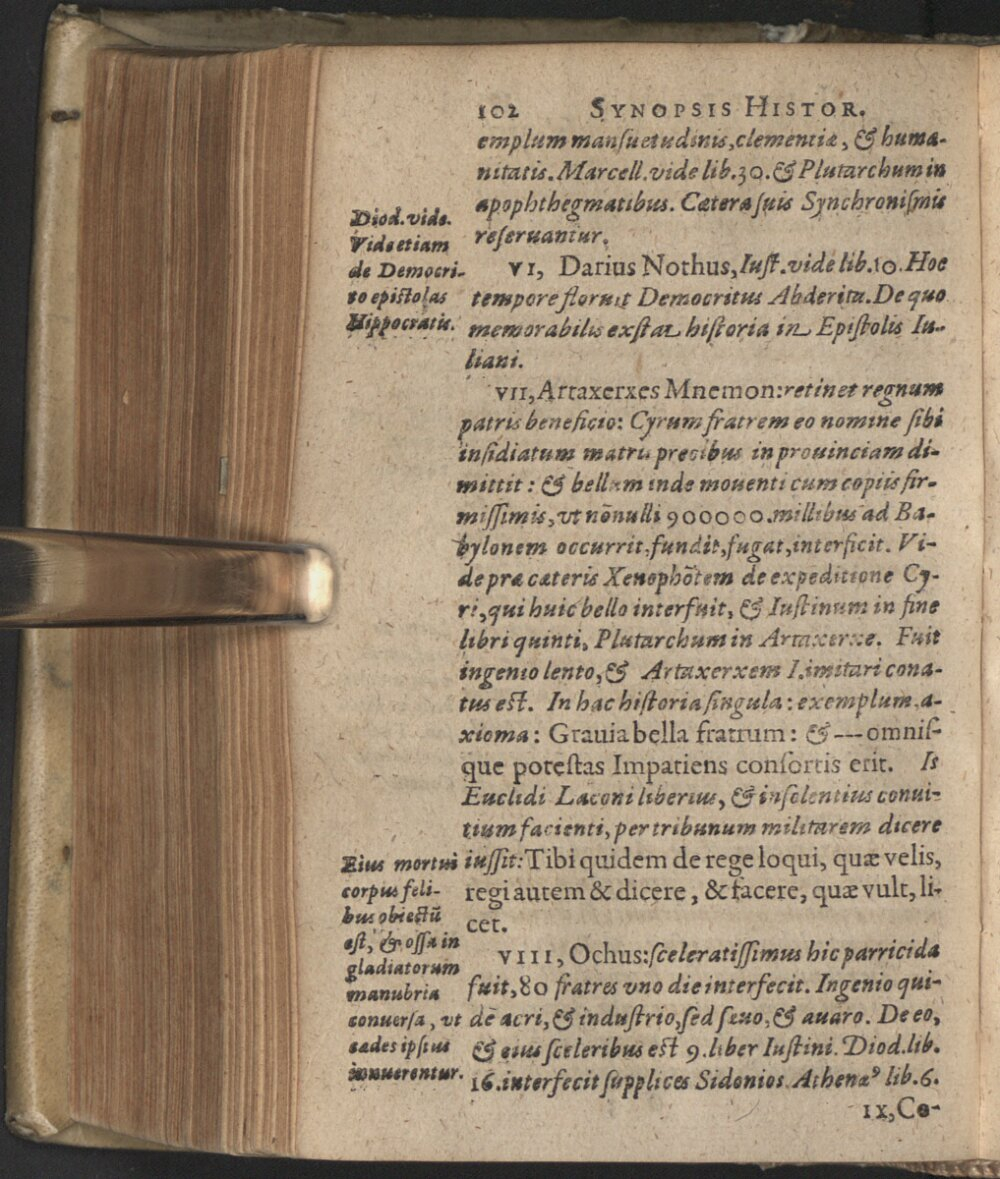 102 SYNOPSIS HISTOR.
emplum manſuetudinis, clementiæ, & huma-
nitatis. Marcell. vide lib. 30. & Plutarchum in
apophthegmatibus. Cætera ſuis Synchroniſmis
reſeruantur.
Diod. vide.
Vide etiam
de Democri-
to epiſtolas
Hippocratis.
VI, Darius Nothus, Iuſt. vide lib. 10. Hoc
tempore floruit Democritus Abderita. De quo
memorabilis exſtat hiſtoria in Epiſtolis Iu-
liani.
VII, Artaxerxes Mnemon: retinet regnum
patris beneficio: Cyrum fratrem eo nomine ſibi
inſidiatum matris precibus in prouinciam di-
mittit: & bellum inde mouenti cum copiis fir-
miſſimis, vt nōnulli 900000. millibus ad Ba-
bylonem occurrit, fundit, fugat, interficit. Vi-
de præ cæteris Xenophōtem de expeditione Cy-
ri, qui huic bello interfuit, & Iuſtinum in fine
libri quinti, Plutarchum in Artaxerxe. Fuit
ingenio lento, & Artaxerxem I. imitari cona-
tus eſt. In hac hiſtoria ſingula: exemplum, a-
xioma: Grauia bella fratrum: & --- omniſ-
que poteſtas Impatiens conſortis erit. Is
Euclidi Laconi liberius, & inſolentius conui-
tium facienti, per tribunum militarem dicere
iuſſit: Tibi quidem de rege loqui, quæ velis,
regi autem & dicere, & facere, quæ vult, li-
cet.
Eius mortui
corpus feli-
bus obiectū
eſt, & oſſa in
gladiatorum
manubria
conuerſa, vt
cædes ipſius
innuerentur.
VIII, Ochus: ſceleratiſſimus hic parricida
fuit, 80 fratres vno die interfecit. Ingenio qui-
dē acri, & induſtrio, ſed ſæuo, & auaro. De eo,
& eius ſceleribus eſt 9. liber Iuſtini. Diod. lib.
16. interfecit ſupplices Sidonios. Athenæꝰ lib. 6.
IX, Co-